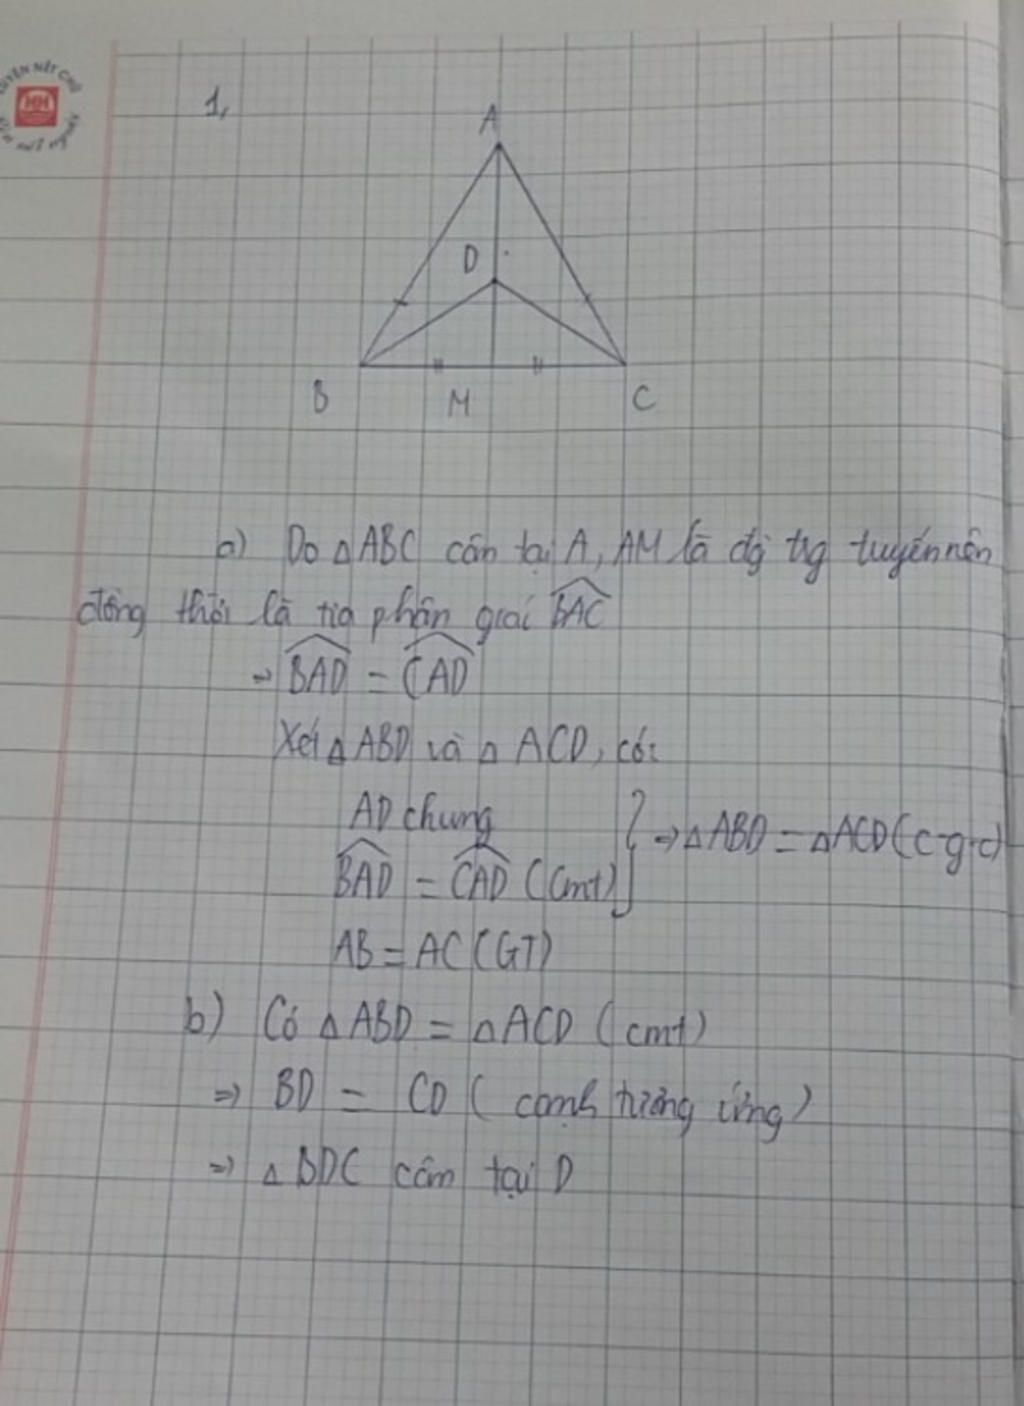 1,
A
D
B M C
a) Do △ABC cân tại A, AM là đg trg tuyến nên
đồng thời là tia phân giái BAC
⇒ BAD = CAD
Xét △ABD và △ACD, có:
AD chung
BAD = CAD (cmt) } ⇒ △ABD = △ACD (c-g-c)
AB = AC (GT)
b) Có △ABD = △ACD (cmt)
⇒ BD = CD (cạnh tương ứng)
⇒ △BDC cân tại D